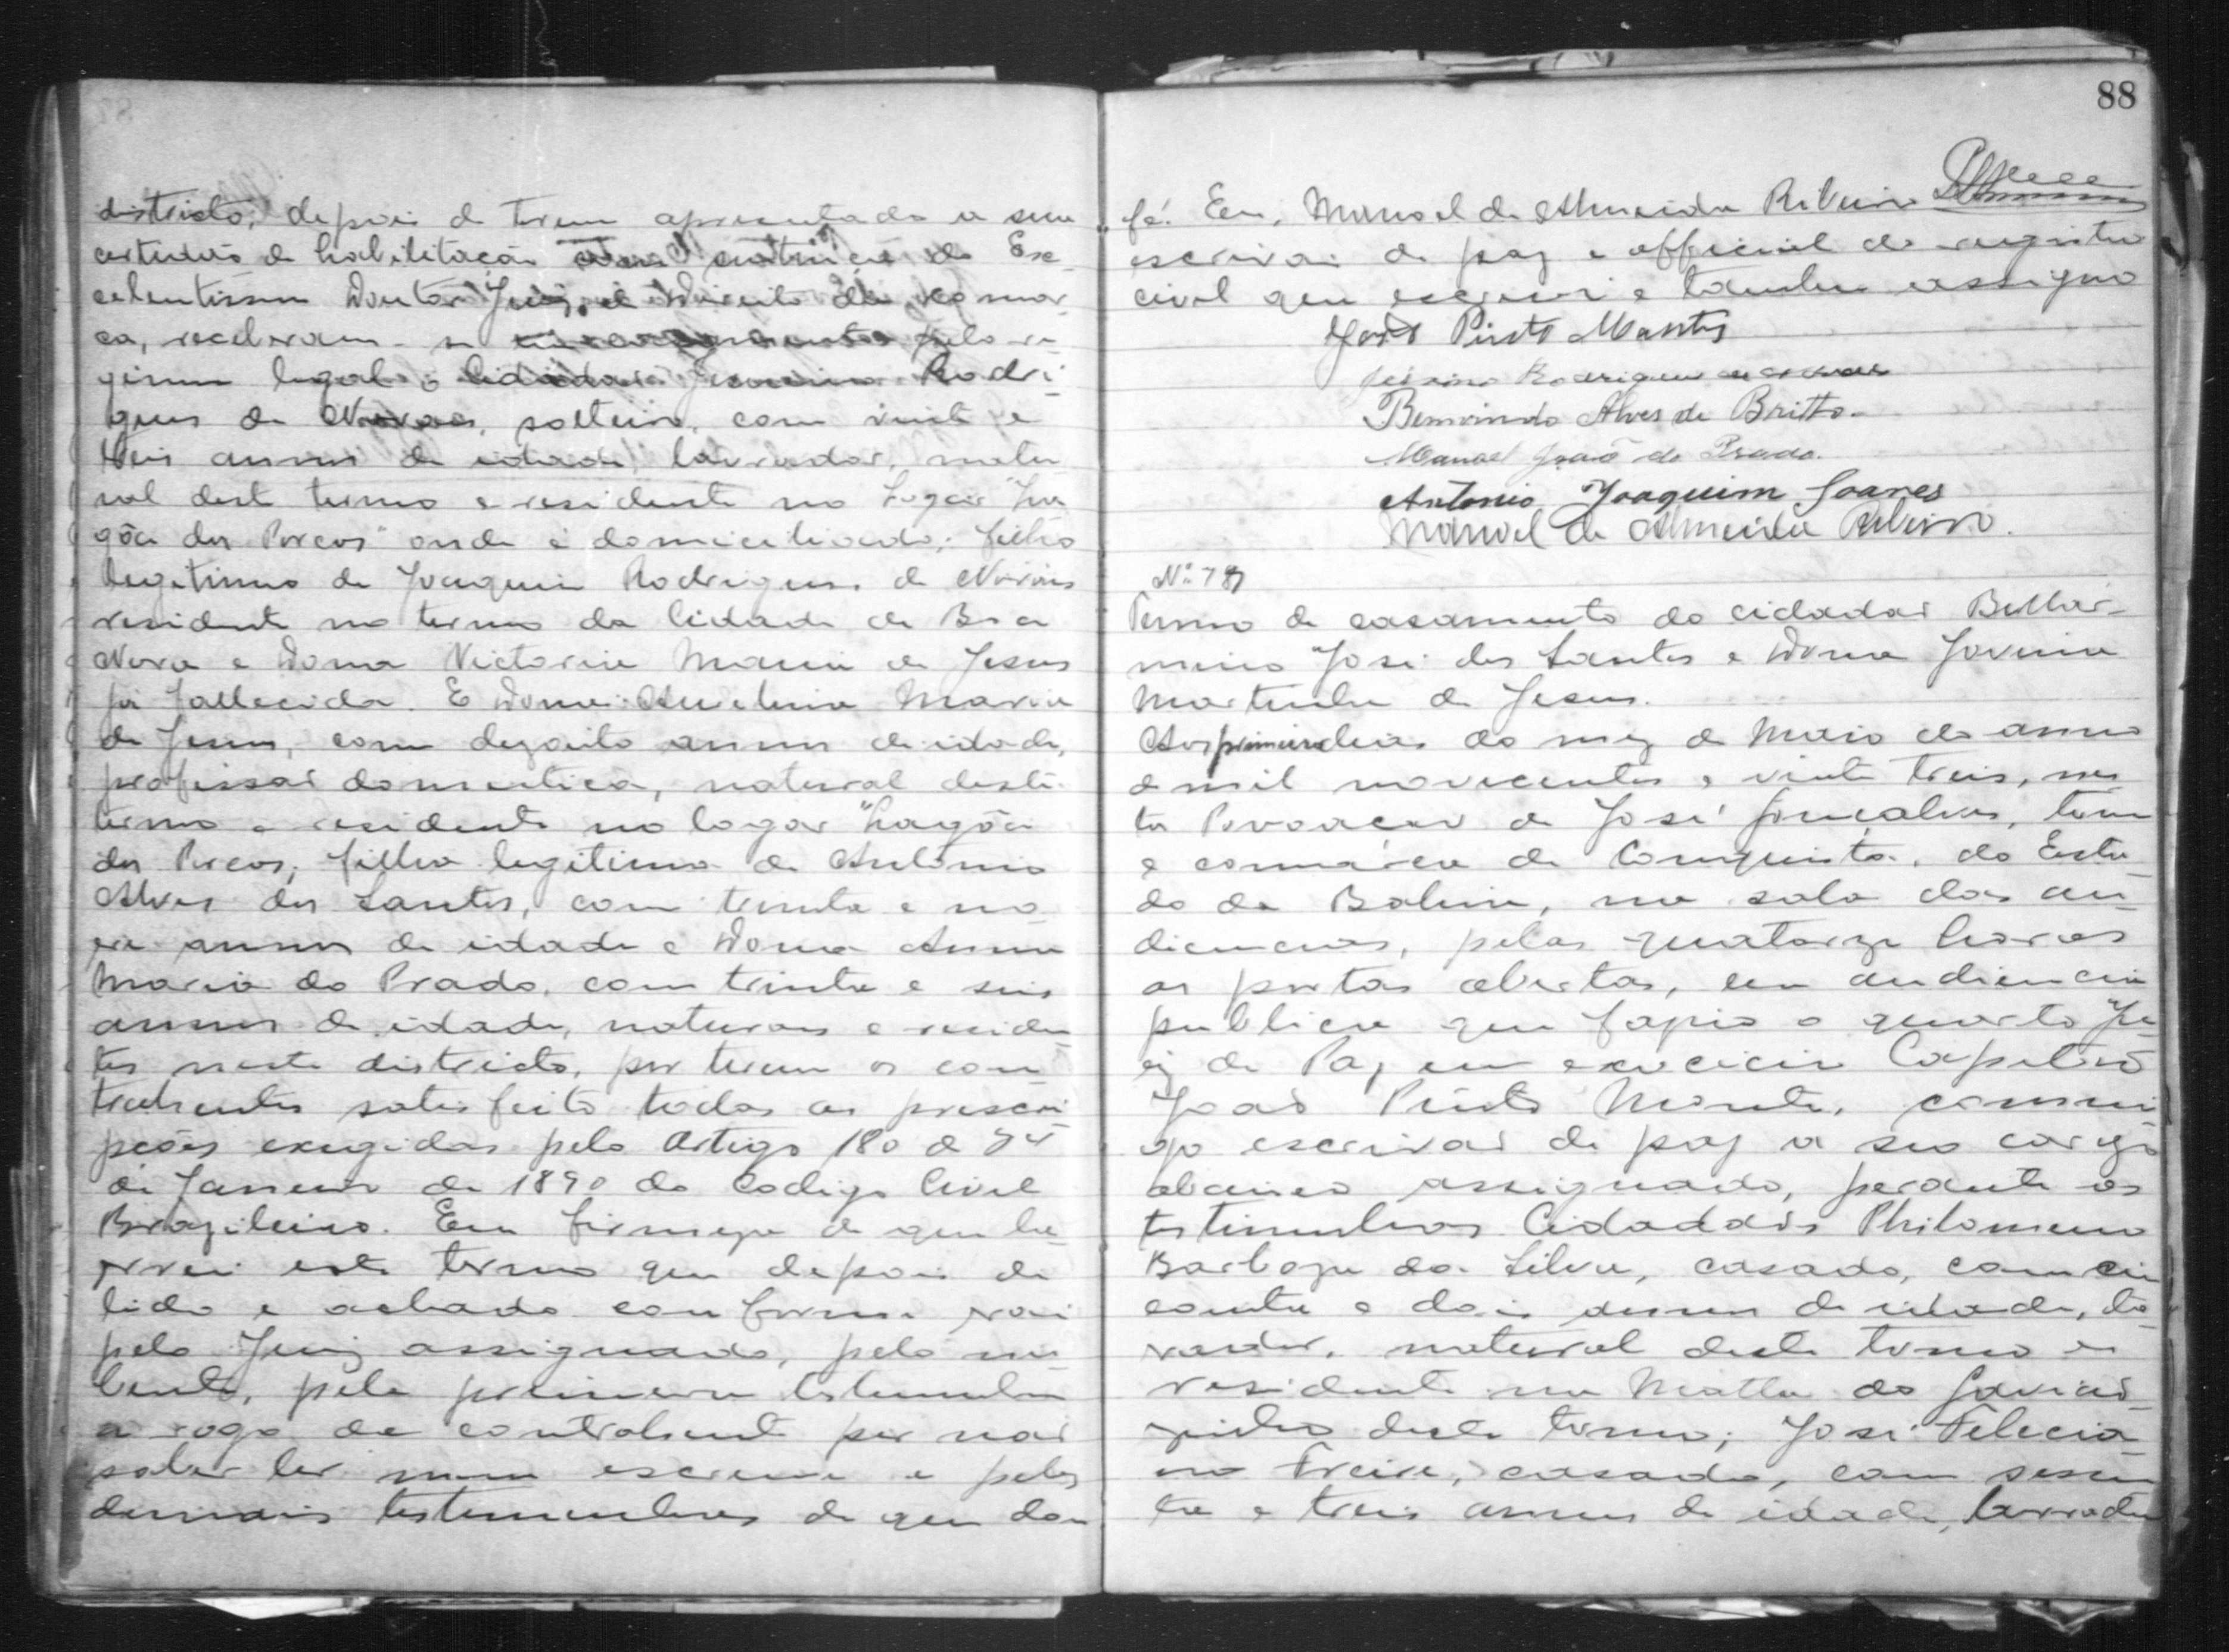 districto, depois de terem apresentado a sua
certidão de habilitação do Exc
celentissimo Doutor Juiz de Direito da comar
ca, receberam-se pelo re
gimem legal o Cidadão Rodri
gues de Novaes, solteiro, com vinte e
seis annos de idade, lavrador, natu
ral deste termo e residente no Logar "La
gôa dos Porcos" onde é domiciliado; filho
legitimo de Joaquim Rodrigues de Novais
residente no termo da Cidade de Boa
Nova e Dona Victoria Maria de Jesus
já fallecida. E Dona Maria
de Jesus, com dezoito annos de idade,
professão domestica, natural deste
termo e residente no logar "Lagôa
dos Porcos, filha legitima de Antonio
Alves dos Santos, com trinta e no
ve annos de idade e Dona Anna
Maria do Prado, com trinta e seis
annos de idade, naturaes e residen
tes neste districto, por terem os con
trahentes satisfeito todas as prescri
pções exegidas pelo Artigo 180 de 24
de Janeiro de 1890 do Codigo Civil
Brazileiro. Em firmeza do que la
vrei este termo que depois de
lido e achado conforme vai
pelo Juiz assignado, pelo nu
bente, pela primeira testemunha
a rogo da contrahente por não
saber ler nem escrever e pelas
demais testemunhas do que dou
88
fé. Eu, Manoel de Almeida Ribeiro
escrivão de paz e official do registro
civil que escrevi e tambem assigno
João Pinto Montes
Rodrigues de Novaes
Bemvindo Alves de Britto.
Manoel João do Prado.
Antonio Joaquim Soares
Manoel de Almeida Ribeiro.
Nº 787
Termo de casamento do cidadão Bellar-
mino José dos Santos e Dona Jovina
Martinha de Jesus.
Aos primeiro dias do mez de Maio do anno
de mil novecentos e vinte treis, nes
ta Povoação de José Gonçalves, termo
e comarca de Conquista, do Esta
do da Bahia, na sala das au
diencias, pelas quatorze horas
as portas abertas, em audiencia
publica que fazia o quarto Ju
iz de Paz em exercicio Capitão
João Pinto Montes, commi
go escrivão de paz a seo cargo
abaixo assignado, perante as
testimunhas Cidadãos Philomeno
Barboza da Silva, casado, com cin
coenta e dois annos de idade, la
vrador, natural deste termo e
residente na Matta do Gaviaõ
zinho deste termo; José Felecia
no Freire, casado, com sessen
ta e treis annos de idade, lavrador